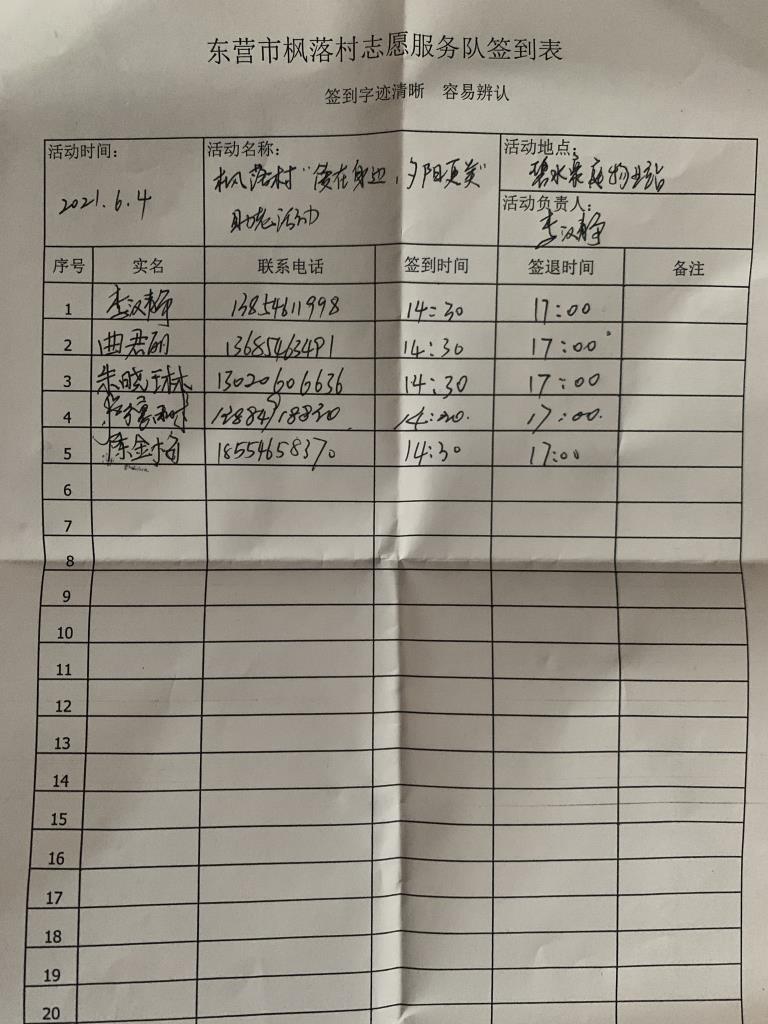 东营市枫落村志愿服务队签到表
签到字迹清晰 容易辨认
活动时间： 2021.6.4
活动名称： 枫落村“爱在身边，夕阳更美”
助老活动
活动地点： 碧水豪庭物业站
活动负责人： 李汉静
序号 实名 联系电话 签到时间 签退时间 备注
1 李汉静 13854611998 14:30 17:00
2 曲君丽 13685463491 14:30 17:00
3 朱晓琳 13020606636 14:30 17:00
4 14:30 17:00
5 陈金梅 18554658370 14:30 17:00
6
7
8
9
10
11
12
13
14
15
16
17
18
19
20